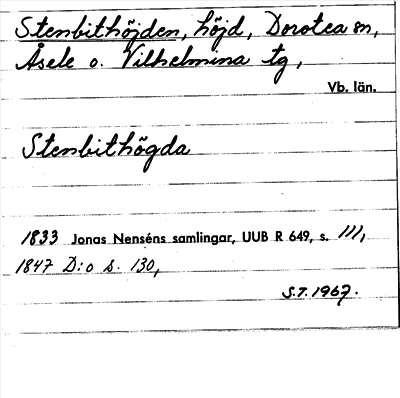 Stenbithöjden, höjd, Dorotea sn,
Åsele o. Vilhelmina tg,
Vb. län.
Stenbithögda
1833 Jonas Nenséns samlingar, UUB R 649, s. 111,
1847 D:o s. 130,
S.T. 1967.